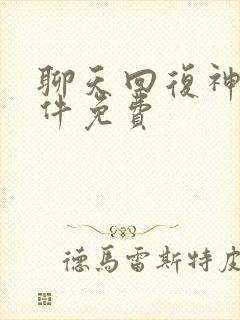 聊天回復神
件免費
德馬雷斯特皮